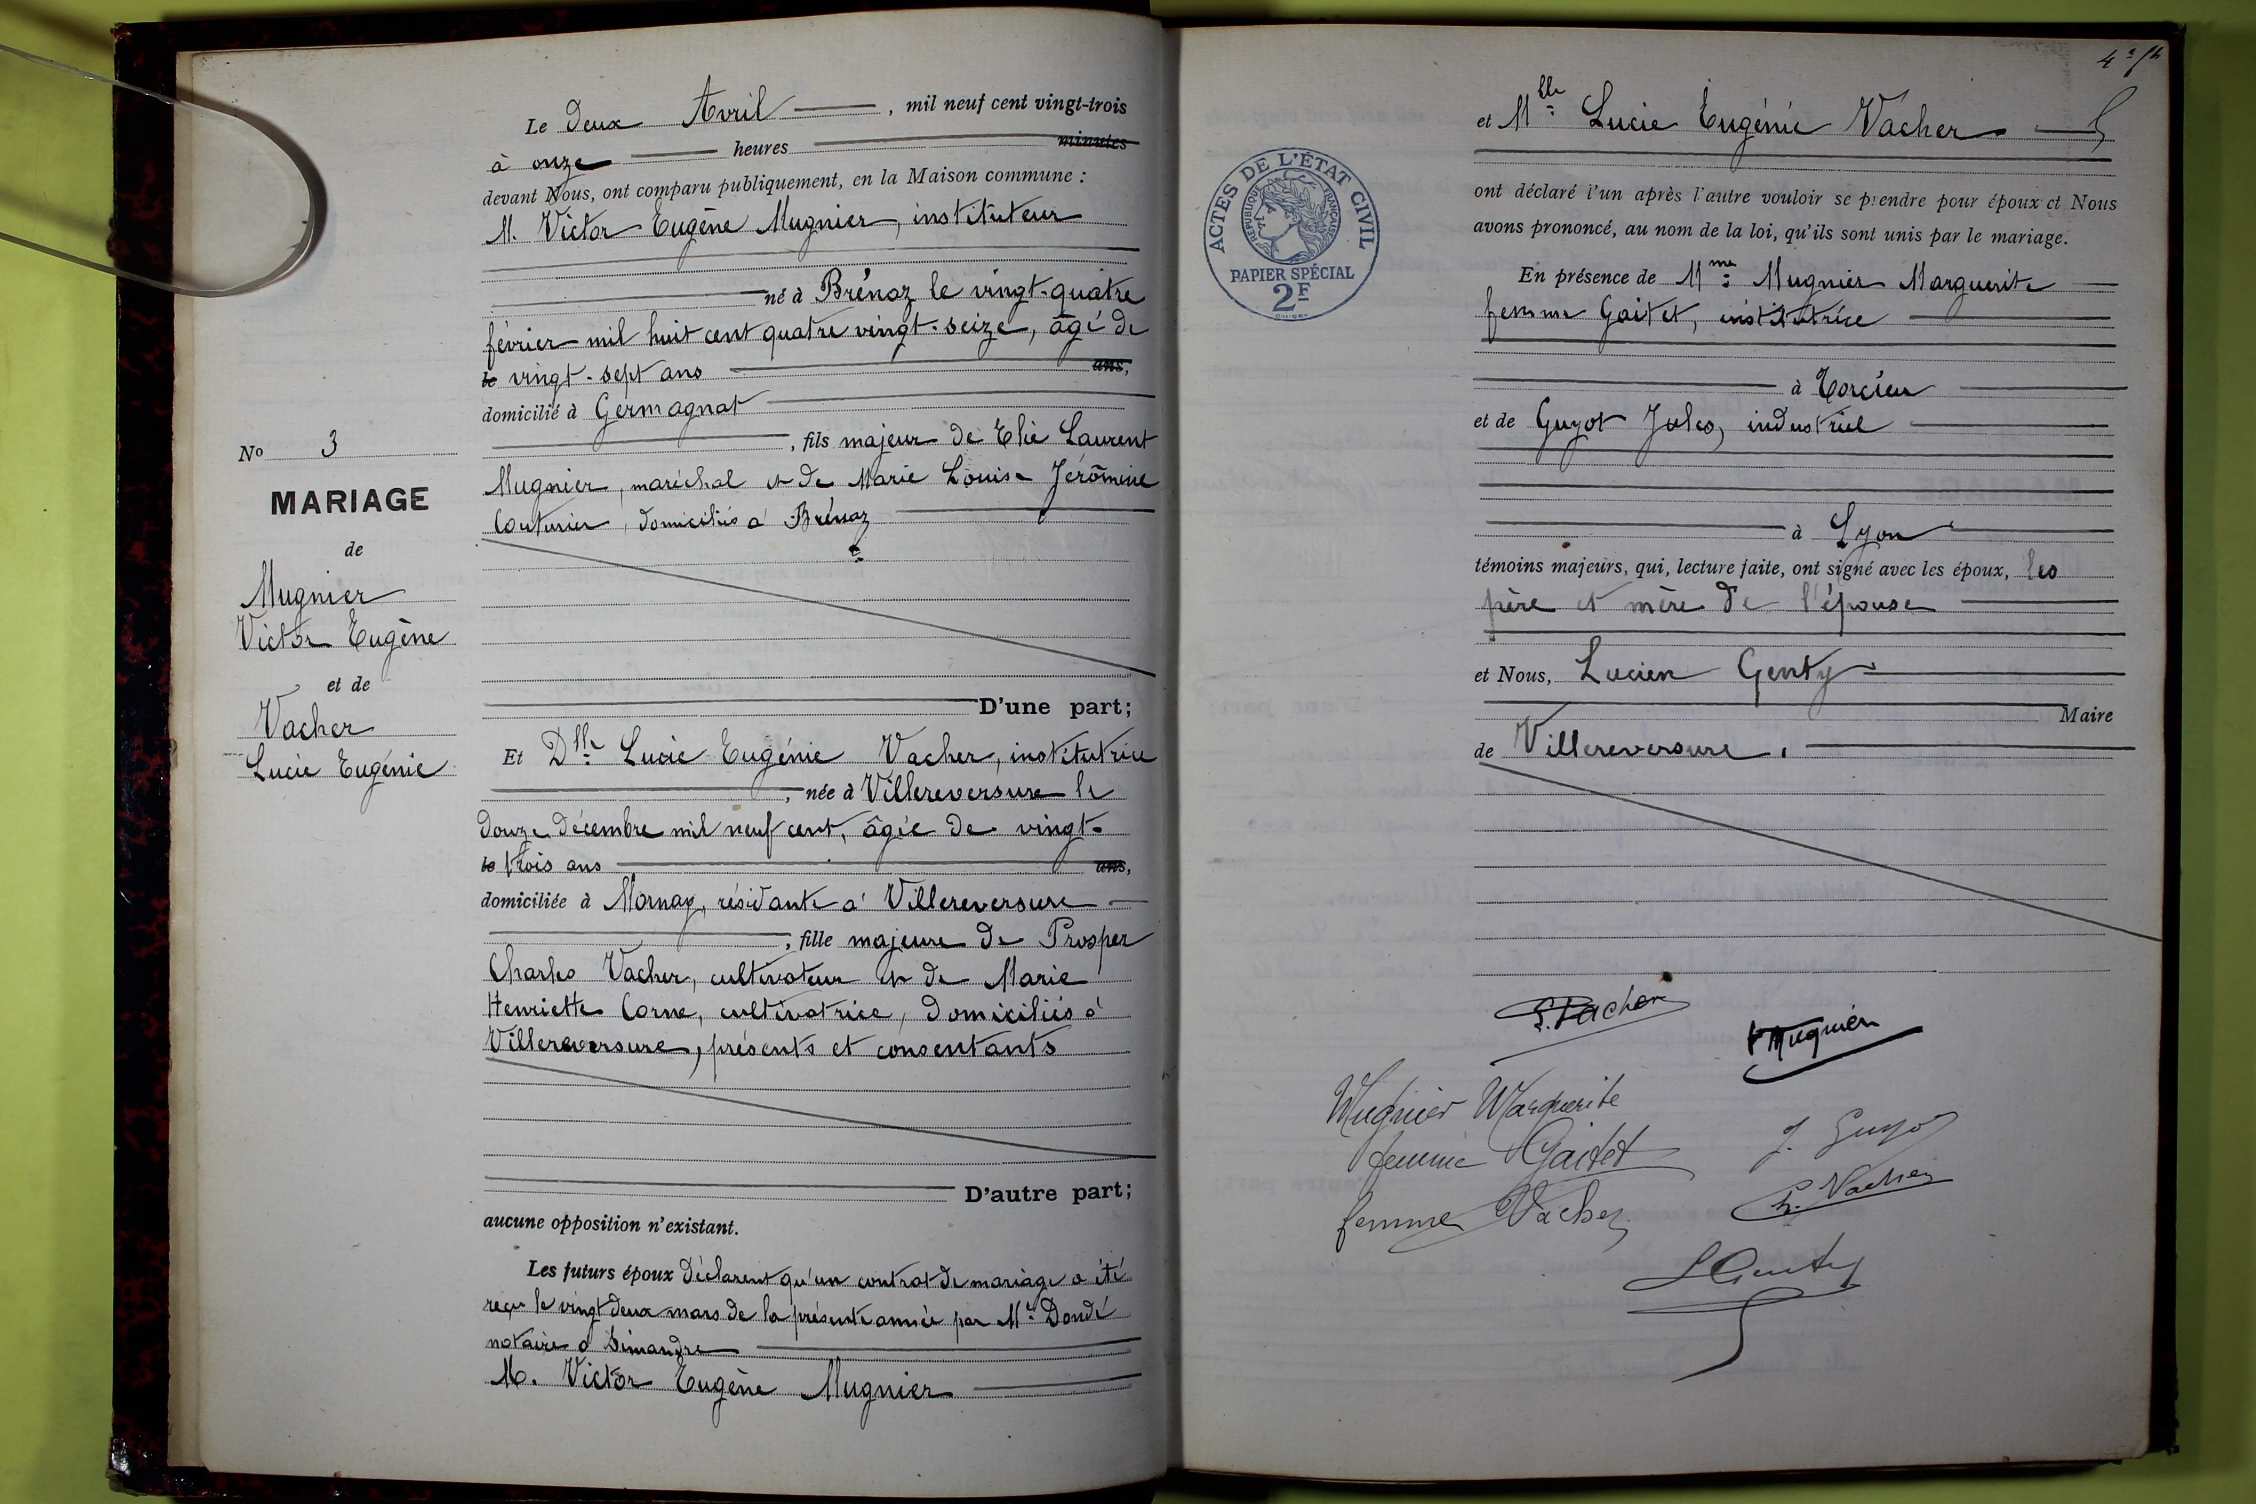 Le deux Avril, mil neuf cent vingt-trois
à onze heures minutes
devant Nous, ont comparu publiquement, en la Maison commune :
M. Victor Eugène Mugnier, instituteur
né à Brénaz le vingt-quatre
février mil huit cent quatre vingt-seize, âgé de
le vingt-sept ans ans,
domicilié à Germagnat
, fils majeur de Elie Laurent
Mugnier, maréchal et de Marie Louise Jérômine
Couturier, domiciliés à Brénaz
No 3
MARIAGE
de
Mugnier
Victor Eugène
et de
Vacher
Lucie Eugénie
D'une part;
Et Dlle Lucie Eugénie Vacher, institutrice
, née à Villereversure le
douze décembre mil neuf cent, âgée de vingt-
le trois ans ans,
domiciliée à Mornay, résidante à Villereversure
, fille majeure de Prosper
Charles Vacher, cultivateur et de Marie
Henriette Corne, cultivatrice, domiciliés à
Villereversure, présents et consentants
D'autre part;
aucune opposition n'existant.
Les futurs époux déclarent qu'un contrat de mariage a été
reçu le vingt deux mars de la présente année par Me Dondé
notaire à Simandre
M. Victor Eugène Mugnier
et Mlle Lucie Eugénie Vacher
ACTES DE L'ÉTAT CIVIL
RÉPUBLIQUE FRANÇAISE
PAPIER SPÉCIAL
2F
ont déclaré l'un après l'autre vouloir se prendre pour époux et Nous
avons prononcé, au nom de la loi, qu'ils sont unis par le mariage.
En présence de Mme Mugnier Marguerite
femme Gaitet, institutrice
à Torcieu
et de Guyot Jules, industriel
à Lyon
témoins majeurs, qui, lecture faite, ont signé avec les époux, les
père et mère de l'épouse
et Nous, Lucien Genty
Maire
de Villereversure.
L. Vacher
V Mugnier
Mugnier Marguerite
femme Gaitet
J. Guyot
femme Vacher
P. Vacher
L Genty